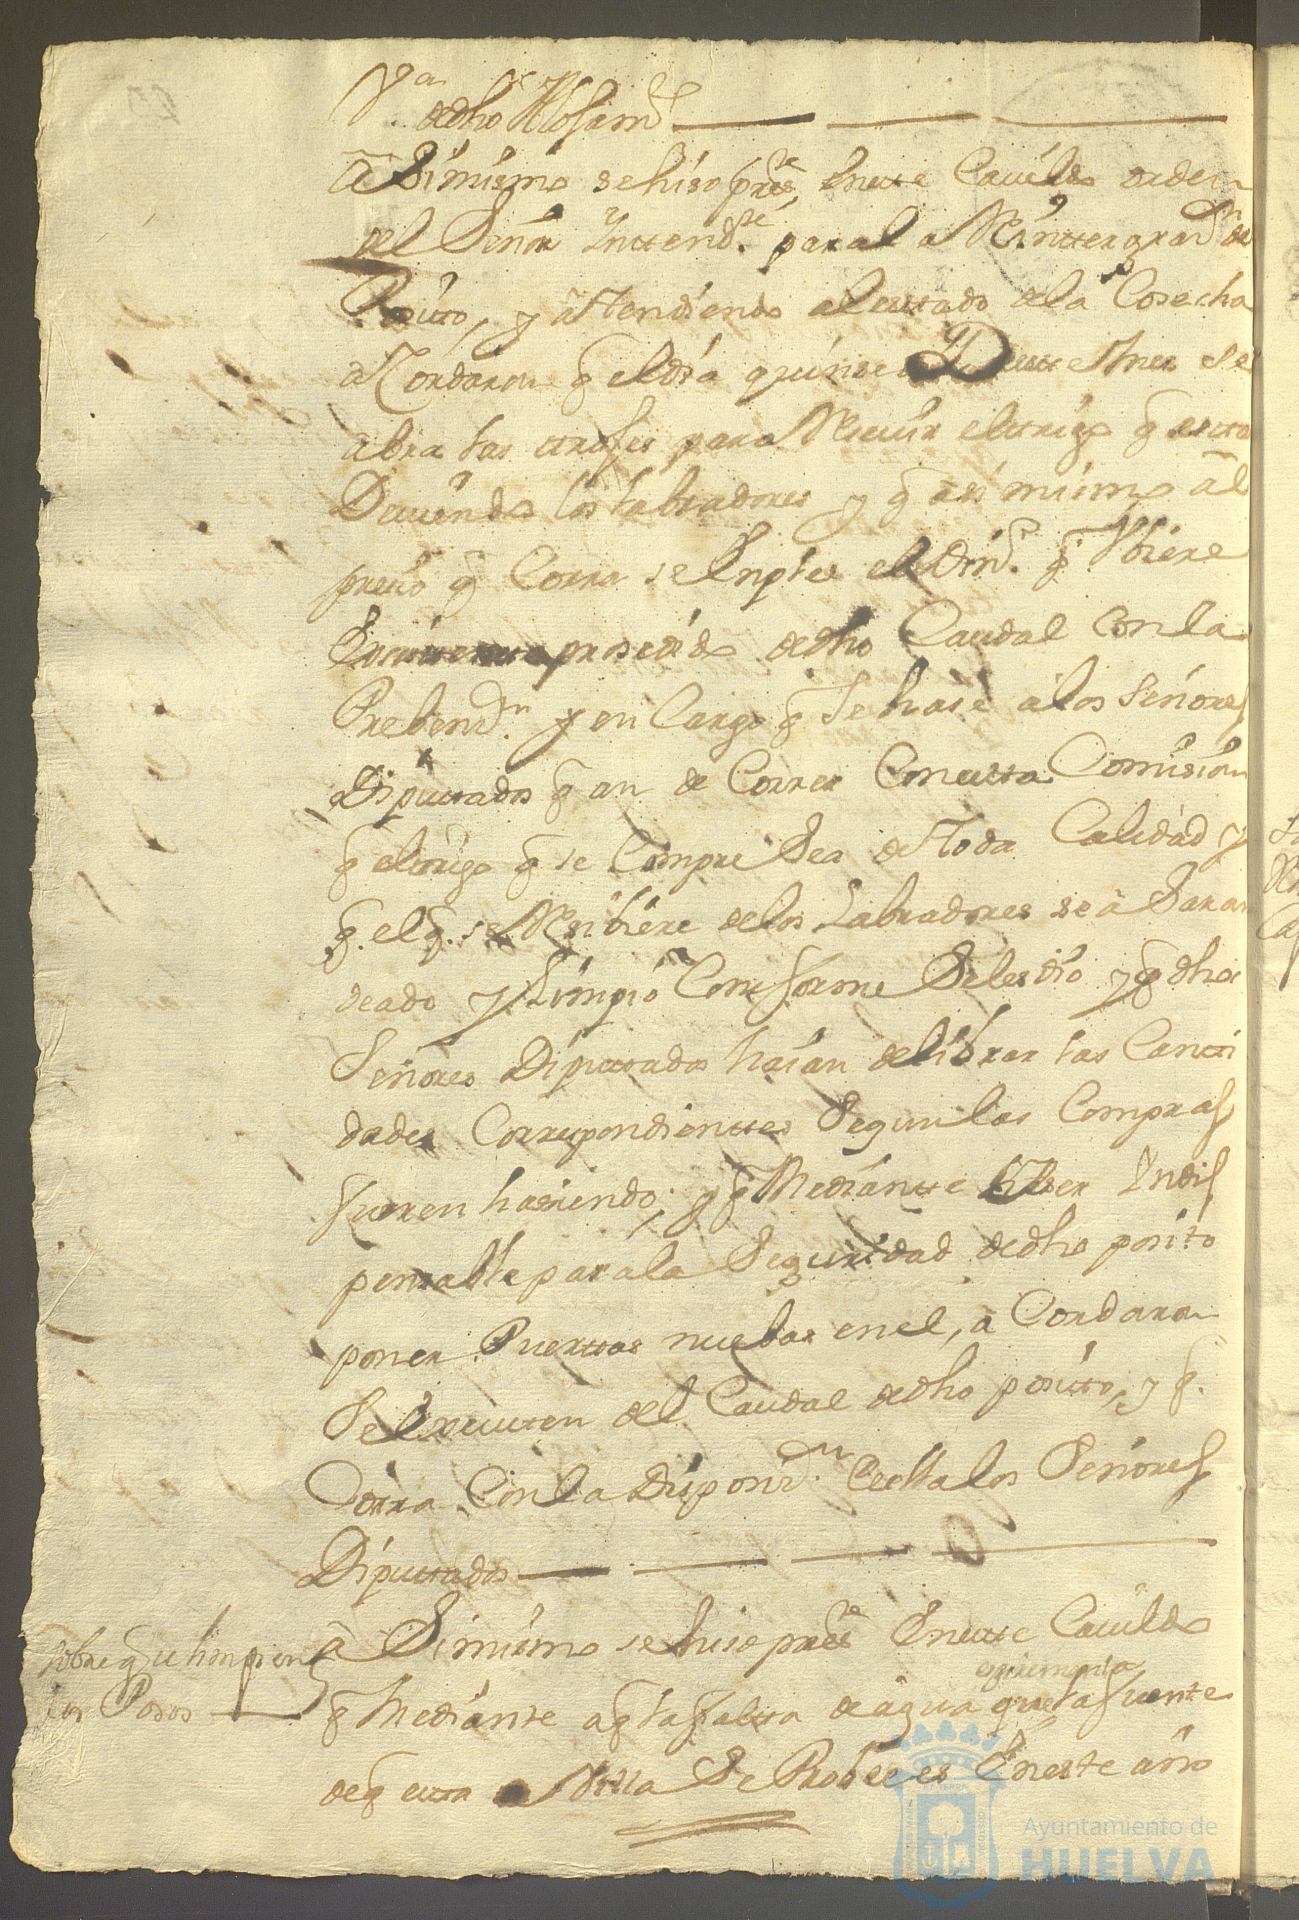 dedho Alojam.to
a Simismo se hiso pres.te Eneste Cavildo orden
del Señor Yntend.te para la Reinttegraz.n de
Posito, y attendiendo al estado dela Cosecha
acordaron q̃ el dia quinse Deestte Mes se
abra las troxes para Resiuir eltrigo q̃ estan
Deviendo los labradores y q̃ asi mismo al
presio q̃ Corra se Enplee el Din.o q̃ Vbiere
prosedido dedho Caudal Con la
Prebenz.n y en Cargo q̃ Se hase alos Señores
Diputtados q̃ an de Correr Conestta Comision
q̃ eltrigo q̃ se Compre Sea de ttoda Calidad y
q̃ el q̃ se Resibiere delos Labradores sea Saran
deado y Limpio Conforme Seles dio y q̃ dhos
Señores Diputtados haian de librar las Canti
dades Correspondienttes Segun las Compras
fueren hasiendo; y q̃ Mediantte Elser Yndis
pensable para la Seguridad dedho posito
poner Puerttas nuebas enel, a Cordaron
Se Executen del Caudal dedho posito, y q̃.
Corra Con la Disposiz.n dedhos Señores
Diputtados
Sobre q̃ se limpien
los Posos
a Simismo se hiso pres.te Eneste Cavildo
q̃ Mediante aq̃ la faltta de agua que la fuente
de q̃ esta Villa Se Probee es Eneste año
Ayuntamiento de
HUELVA